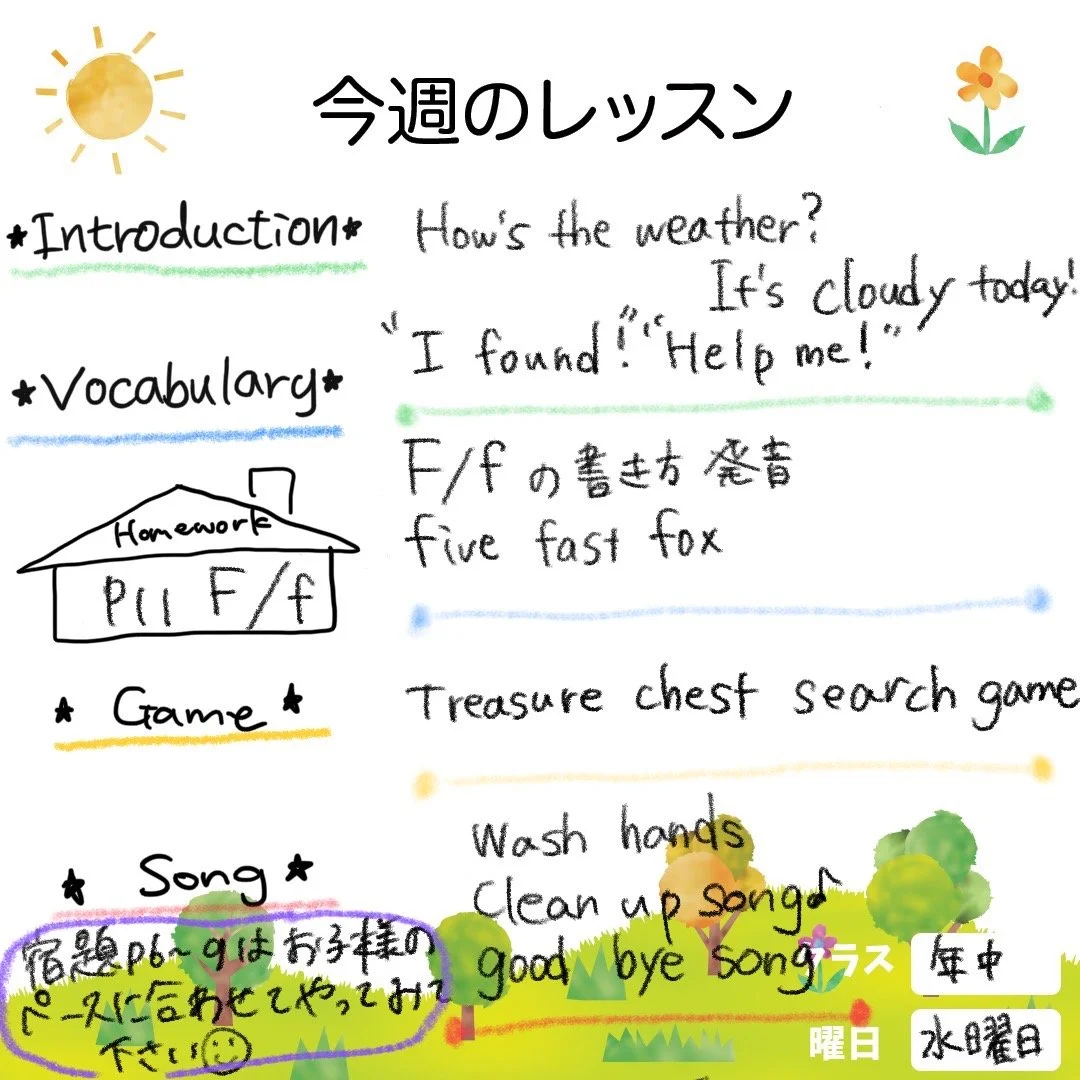 今週のレッスン
★Introduction★
How's the weather?
It's cloudy today!
"I found!" "Help me!"
★Vocabulary★
F/fの書き方 発音
five fast fox
Homework
P11 F/f
★Game★
Treasure chest search game
★Song★
Wash hands
Clean up song♪
good bye song
宿題P6~9はお子様の
ペースに合わせてやってみて
下さい☺
クラス 年中
曜日 水曜日